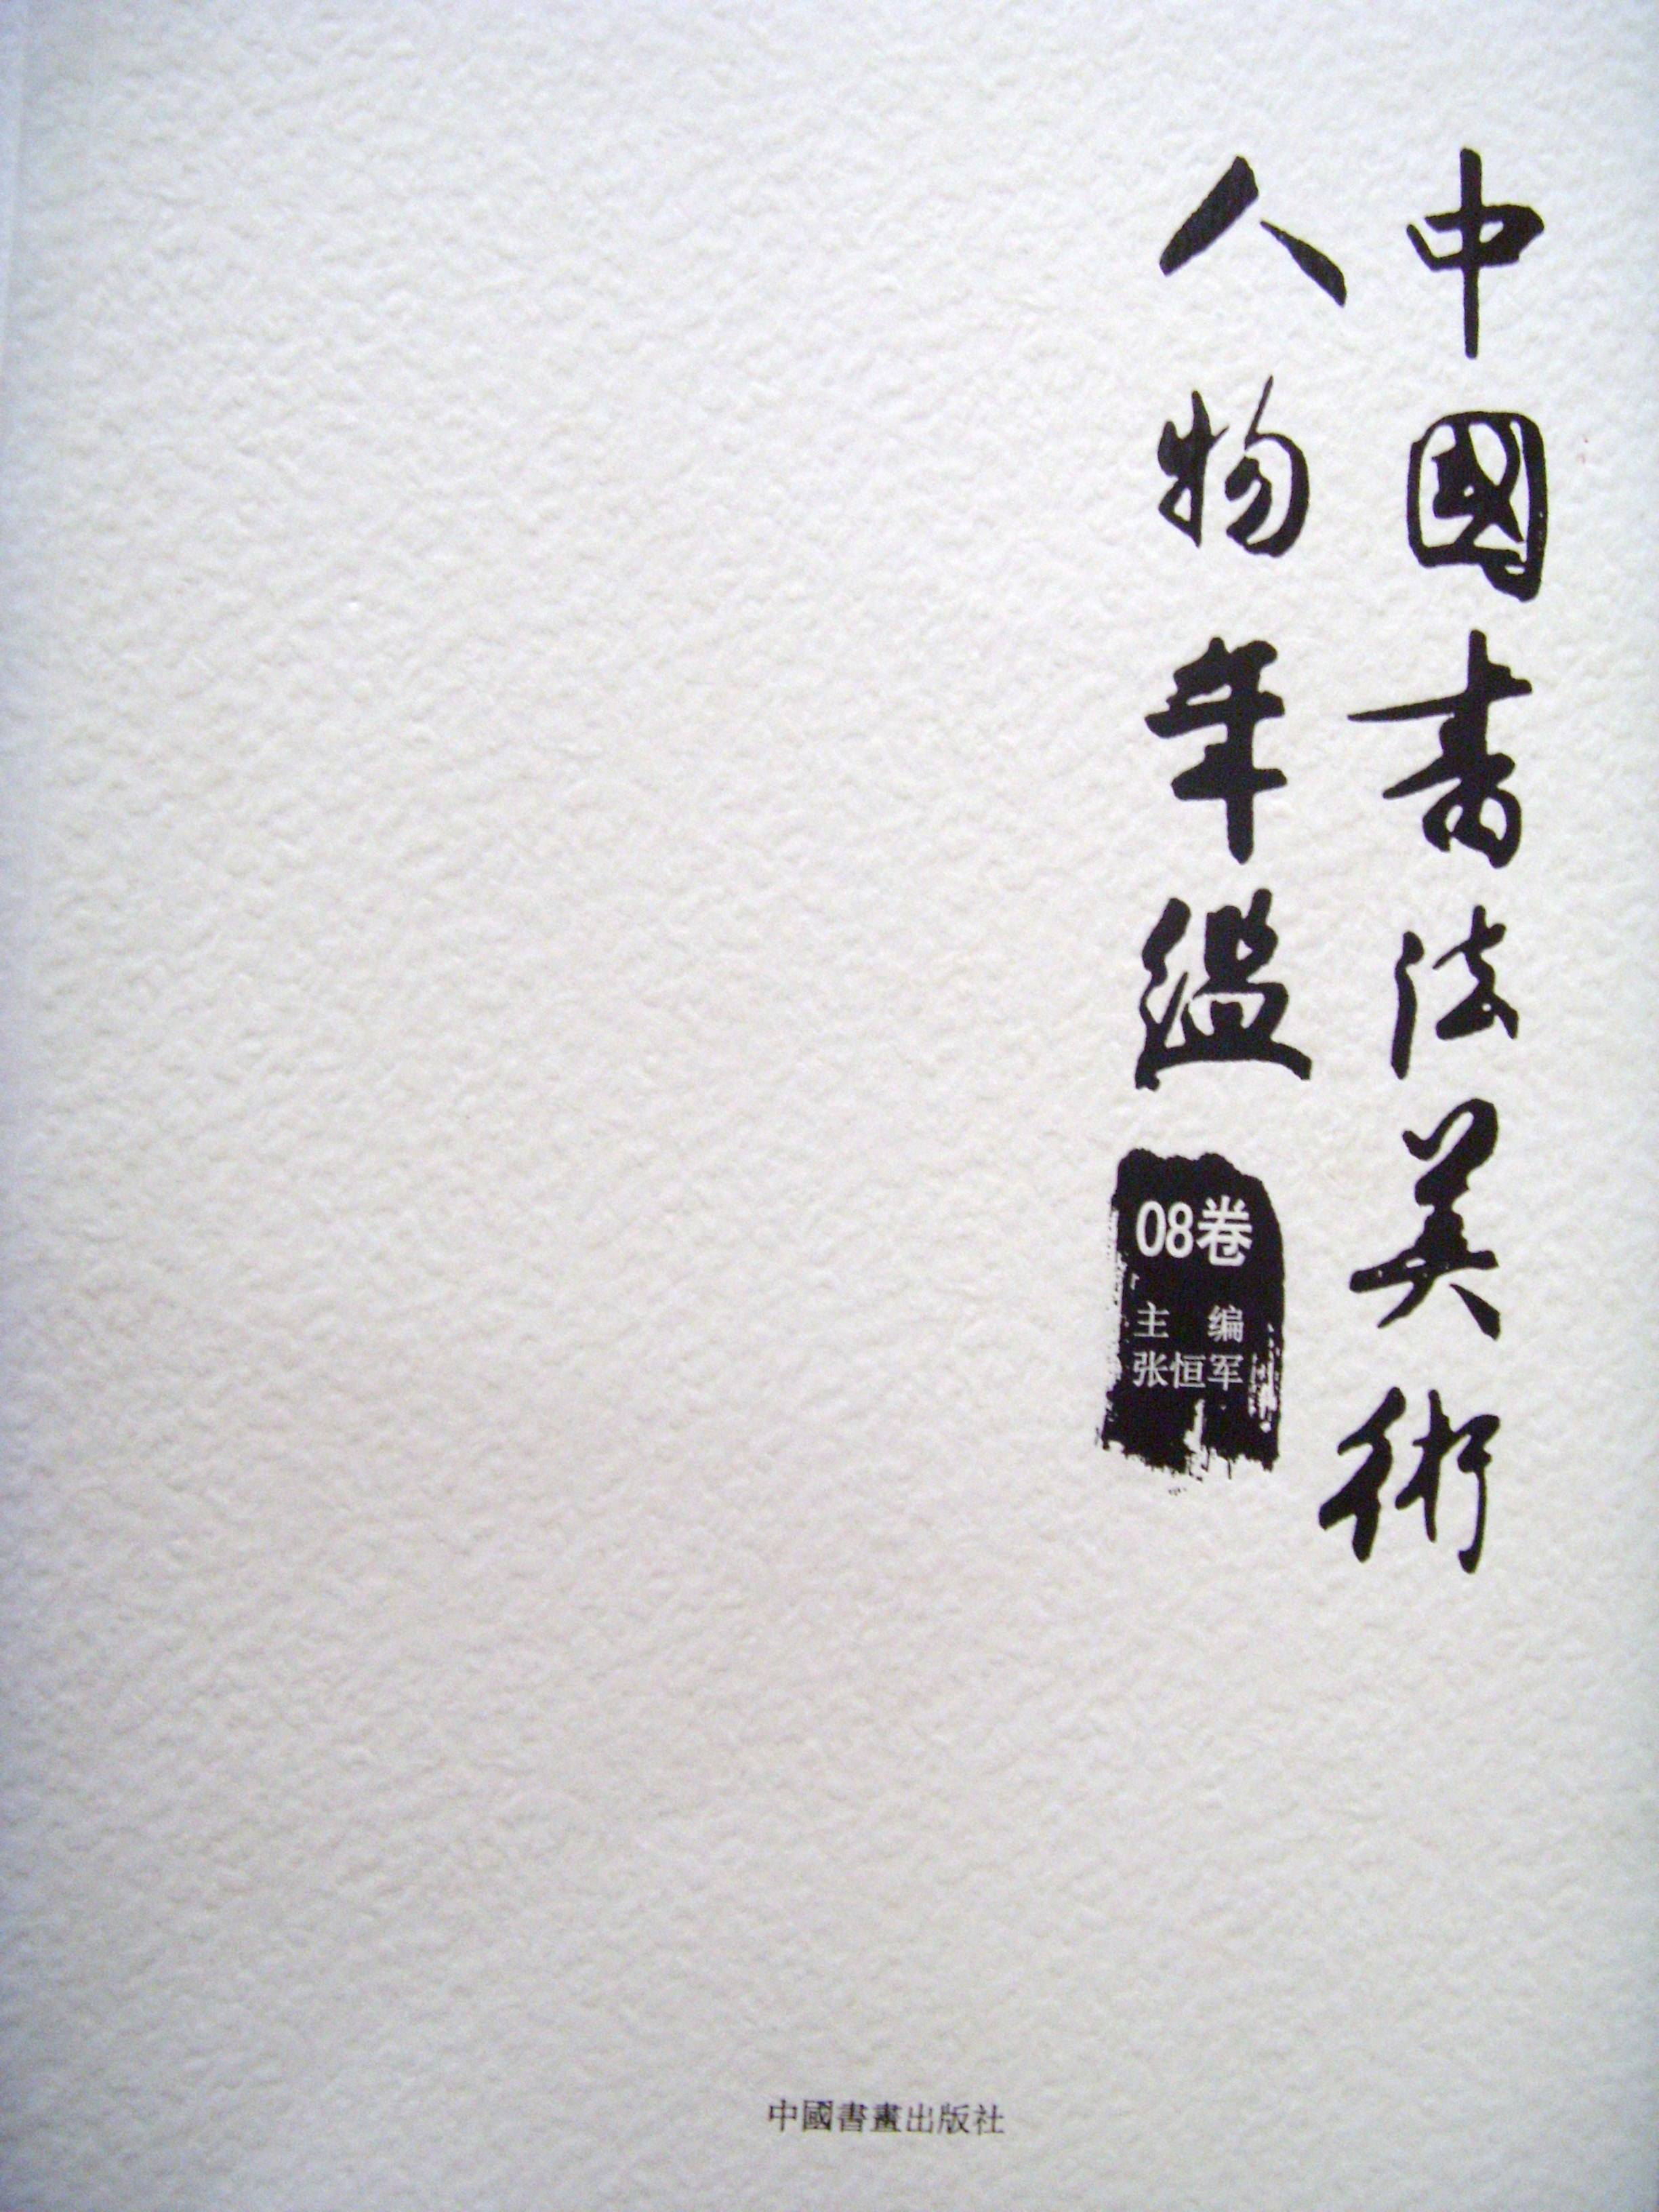 中國書法美術
人物年鑑
08卷
主 编
张恒军
中國書畫出版社